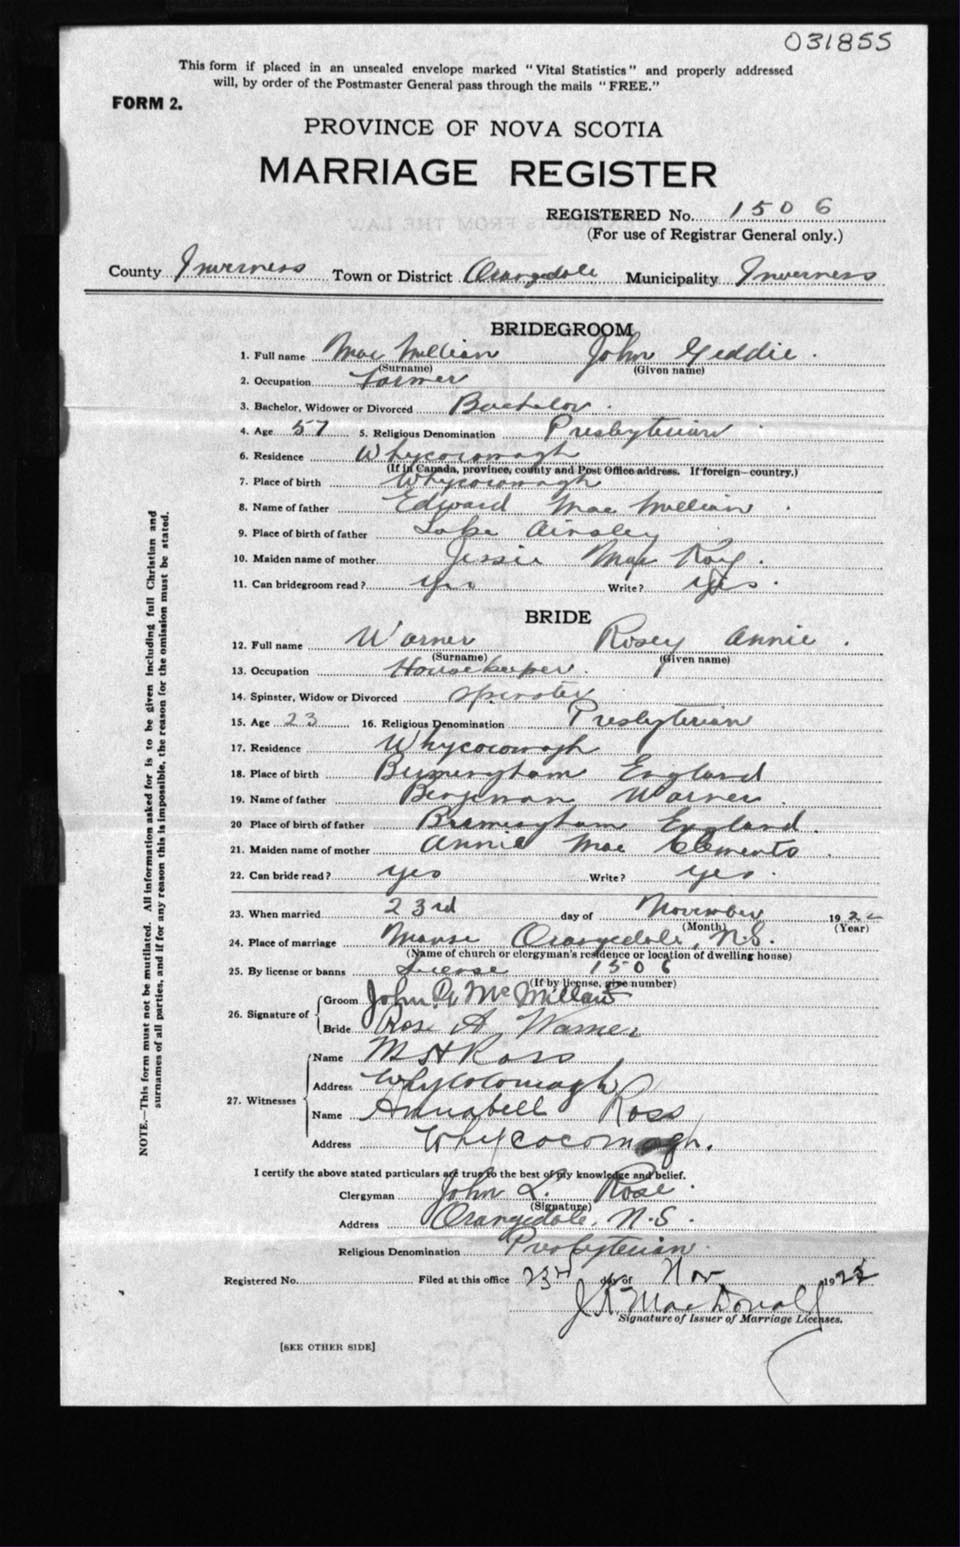 031855
This form if placed in an unsealed envelope marked "Vital Statistics" and properly addressed
will, by order of the Postmaster General pass through the mails "FREE."
FORM 2.
PROVINCE OF NOVA SCOTIA
MARRIAGE REGISTER
REGISTERED No. 1506
(For use of Registrar General only.)
County Inverness Town or District Orangedale Municipality Inverness
BRIDEGROOM
1. Full name Mac Millian John Geddie.
(Surname) (Given name)
2. Occupation Farmer
3. Bachelor, Widower or Divorced Bachelor.
4. Age 57 5. Religious Denomination Presbyterian
6. Residence Whycocomagh
(If in Canada, province, county and Post Office address. If foreign—country.)
7. Place of birth Whycocomagh
8. Name of father Edward Mac Millian.
9. Place of birth of father Lake Ainsley
10. Maiden name of mother Jessie Mac Kay.
11. Can bridegroom read? yes Write? yes.
BRIDE
12. Full name Warner Rosey Annie.
(Surname) (Given name)
13. Occupation Housekeeper.
14. Spinster, Widow or Divorced Spinster
15. Age 23 16. Religious Denomination Presbyterian
17. Residence Whycocomagh
18. Place of birth Birmingham England
19. Name of father Benjeman Warner.
20 Place of birth of father Birmingham England.
21. Maiden name of mother Annie Mac Clements.
22. Can bride read? yes Write? yes.
23. When married 23rd day of November 192
(Month) (Year)
24. Place of marriage Manse Orangedale, N.S.
(Name of church or clergyman's residence or location of dwelling house)
25. By license or banns License 1506
(If by license, give number)
26. Signature of
Groom John G McMillan
Bride Rose A Warner
27. Witnesses
Name M H Ross
Address Whycocomagh
Name Annabell Ross
Address Whycocomagh.
I certify the above stated particulars are true to the best of my knowledge and belief.
Clergyman John L. Rose.
(Signature)
Address Orangedale, N.S.
Religious Denomination Presbyterian.
Registered No. Filed at this office 23rd day of Nov 1922
J K MacDonald
Signature of Issuer of Marriage Licenses.
[SEE OTHER SIDE]
NOTE.—This form must not be mutilated. All information asked for is to be given including full Christian and
surnames of all parties, and if for any reason this is impossible, the reason for the omission must be stated.